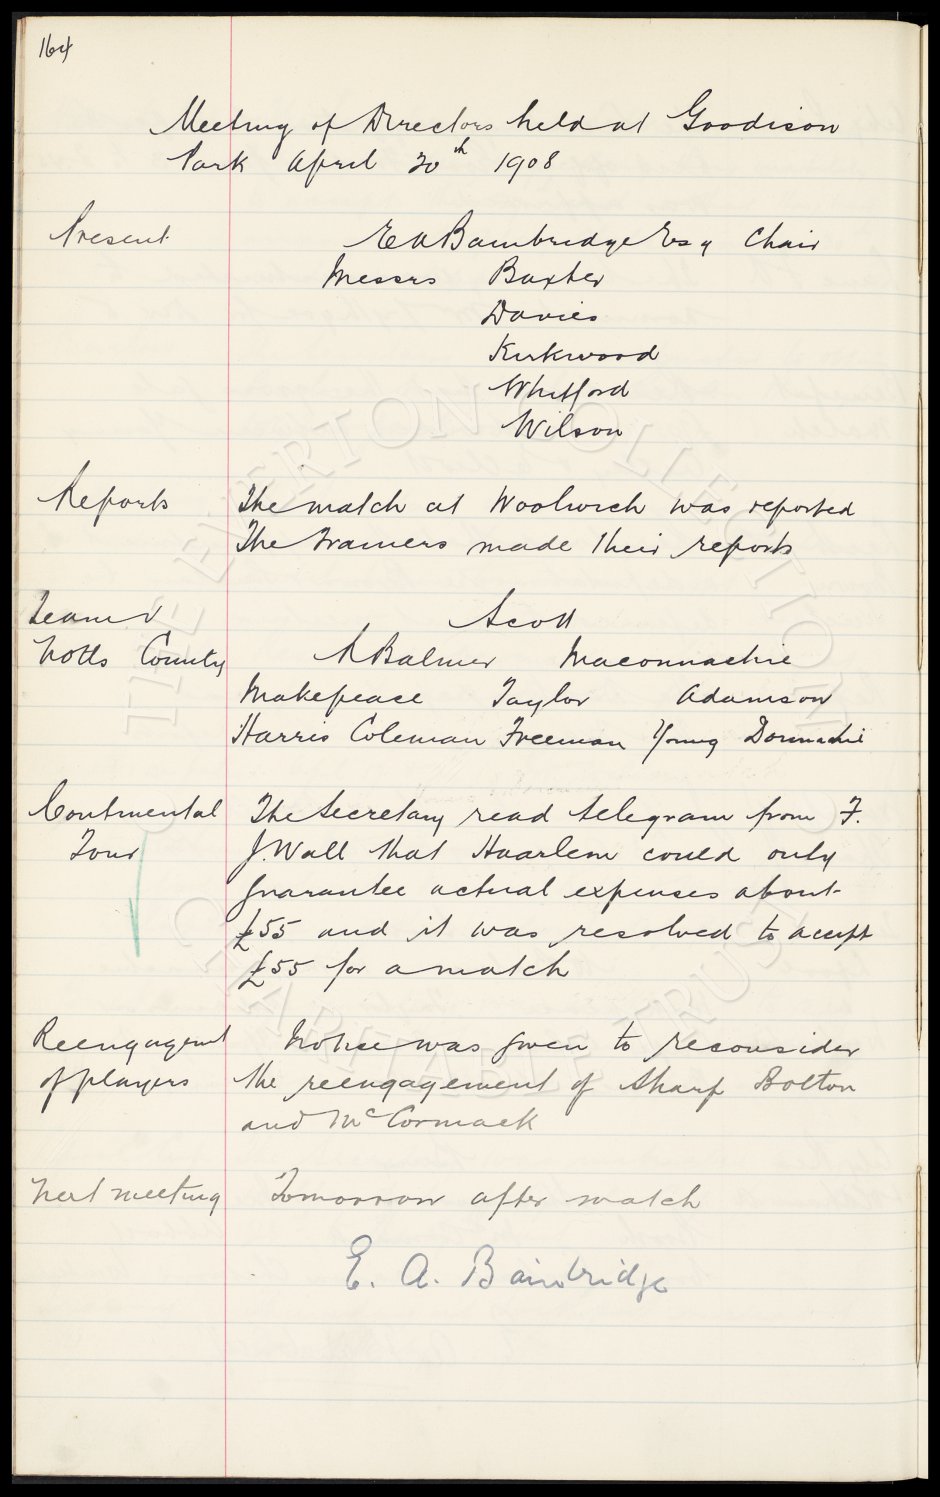 164
Meeting of Directors held at Goodison
Park April 20th 1908
Present
E A Bainbridge Esq Chair
Messrs Baxter
Davies
Kirkwood
Whitford
Wilson
Reports
The match at Woolwich was reported
The Trainers made their reports
Team v
Notts County
Scott
R Balmer Maconnachie
Makepeace Taylor Adamson
Harris Coleman Freeman Young Donnachie
Continental
Tour
The Secretary read telegram from F.
J. Wall that Haarlem could only
guarantee actual expenses about
£55 and it was resolved to accept
£55 for a match
Reengagemt
of players
Notice was given to reconsider
the reengagement of Sharp Bolton
and McCormack
Next meeting
Tomorrow after match
E. A. Bainbridge
THE EVERTON COLLECTION
CHARITABLE TRUST